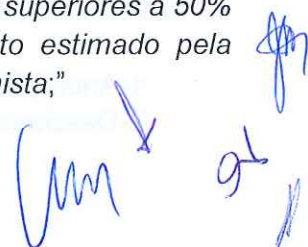 superiores a 50%
to estimado pela
nista;”